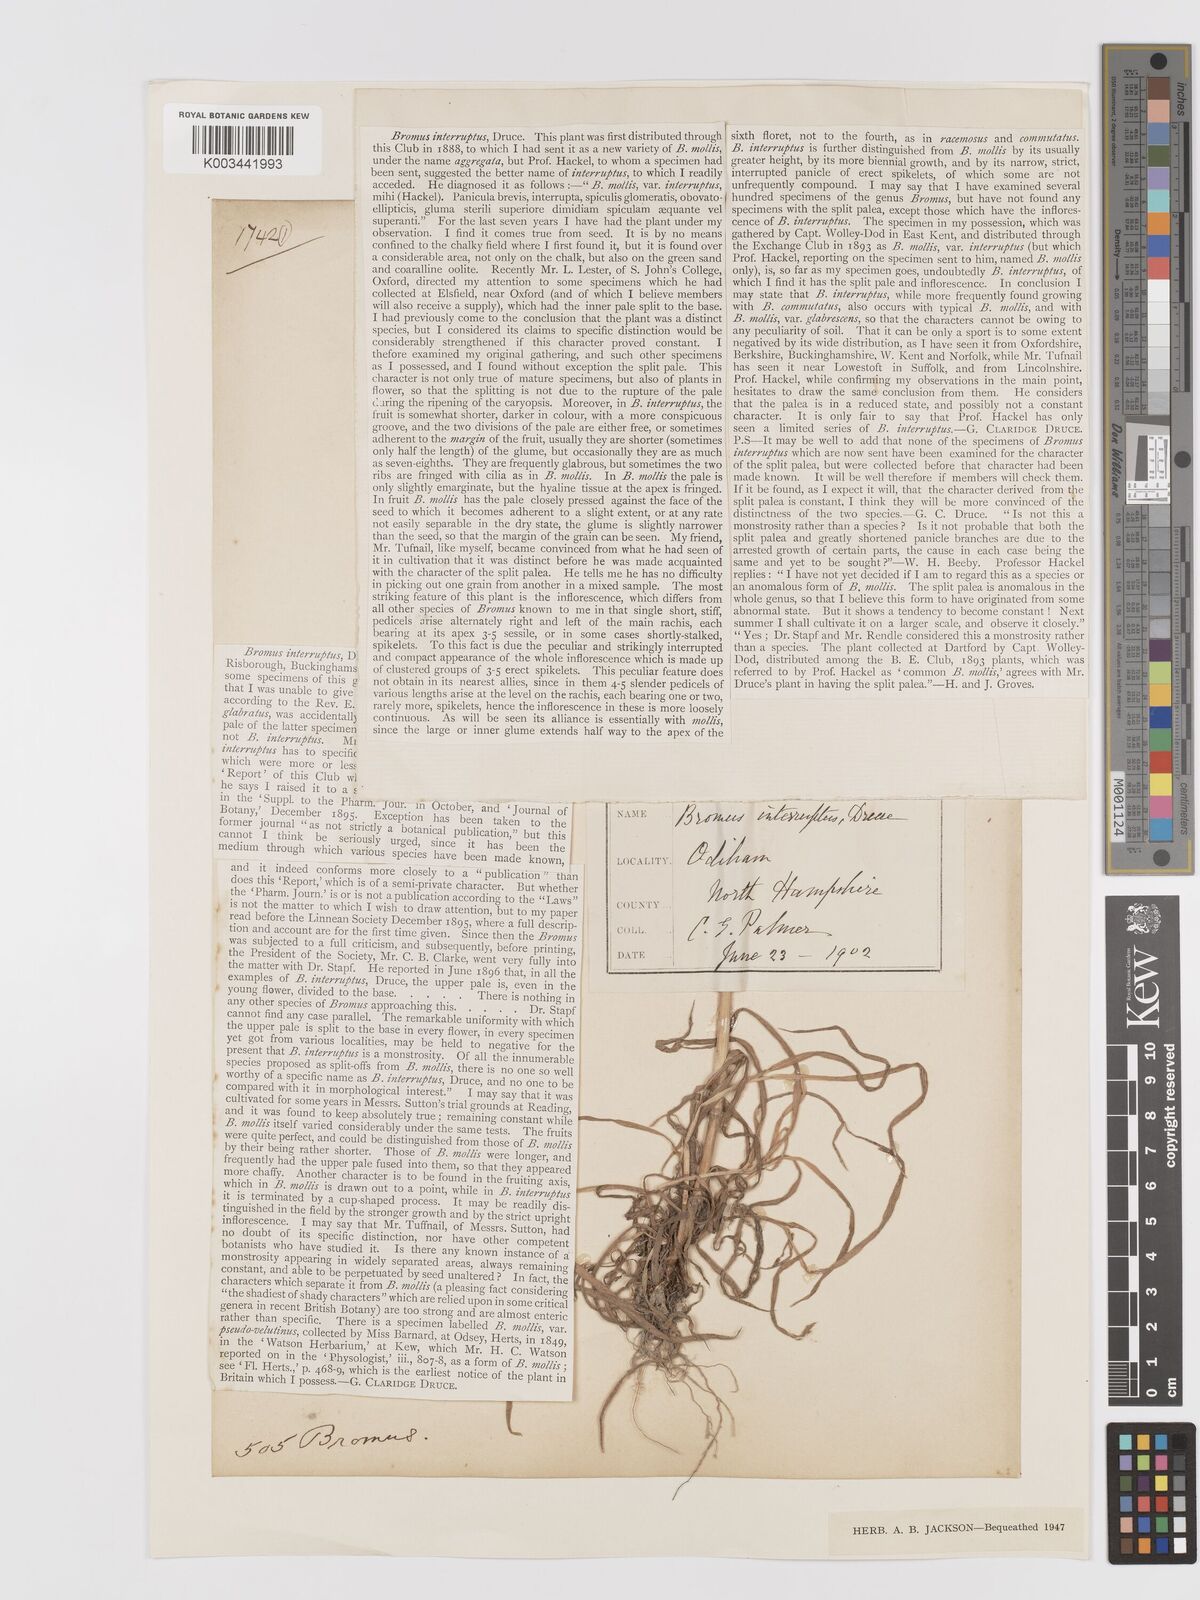 ROYAL BOTANIC GARDENS KEW
K003441993
17420
Bromus interruptus, Druce. This plant was first distributed through
this Club in 1888, to which I had sent it as a new variety of B. mollis,
under the name aggregata, but Prof. Hackel, to whom a specimen had
been sent, suggested the better name of interruptus, to which I readily
acceded. He diagnosed it as follows :—“ B. mollis, var. interruptus,
mihi (Hackel). Panicula brevis, interrupta, spiculis glomeratis, obovato-
ellipticis, gluma steril superiore dimidiam spiculam æquante vel
superanti.” For the last seven years I have had the plant under my
observation. I find it comes true from seed. It is by no means
confined to the chalky field where I first found it, but it is found over
a considerable area, not only on the chalk, but also on the green sand
and coaralline oolite. Recently Mr. L. Lester, of S. John's College,
Oxford, directed my attention to some specimens which he had
collected at Elsfield, near Oxford (and of which I believe members
will also receive a supply), which had the inner pale split to the base.
I had previously come to the conclusion that the plant was a distinct
species, but I considered its claims to specific distinction would be
considerably strengthened if this character proved constant. I
thefore examined my original gathering, and such other specimens
as I possessed, and I found without exception the split pale. This
character is not only true of mature specimens, but also of plants in
flower, so that the splitting is not due to the rupture of the pale
during the ripening of the caryopsis. Moreover, in B. interruptus, the
fruit is somewhat shorter, darker in colour, with a more conspicuous
groove, and the two divisions of the pale are either free, or sometimes
adherent to the margin of the fruit, usually they are shorter (sometimes
only half the length) of the glume, but occasionally they are as much
as seven-eighths. They are frequently glabrous, but sometimes the two
ribs are fringed with cilia as in B. mollis. In B. mollis the pale is
only slightly emarginate, but the hyaline tissue at the apex is fringed.
In fruit B. mollis has the pale closely pressed against the face of the
seed to which it becomes adherent to a slight extent, or at any rate
not easily separable in the dry state, the glume is slightly narrower
than the seed, so that the margin of the grain can be seen. My friend,
Mr. Tufnail, like myself, became convinced from what he had seen of
it in cultivation that it was distinct before he was made acquainted
with the character of the split palea. He tells me he has no difficulty
in picking out one grain from another in a mixed sample. The most
striking feature of this plant is the inflorescence, which differs from
all other species of Bromus known to me in that single short, stiff,
pedicels arise alternately right and left of the main rachis, each
bearing at its apex 3-5 sessile, or in some cases shortly-stalked,
spikelets. To this fact is due the peculiar and strikingly interrupted
and compact appearance of the whole inflorescence which is made up
of clustered groups of 3-5 erect spikelets. This peculiar feature does
not obtain in its nearest allies, since in them 4-5 slender pedicels of
various lengths arise at the level on the rachis, each bearing one or two,
rarely more, spikelets, hence the inflorescence in these is more loosely
continuous. As will be seen its alliance is essentially with mollis,
since the large or inner glume extends half way to the apex of the
sixth floret, not to the fourth, as in racemosus and commutatus.
B. interruptus is further distinguished from B. mollis by its usually
greater height, by its more biennial growth, and by its narrow, strict,
interrupted panicle of erect spikelets, of which some are not
unfrequently compound. I may say that I have examined several
hundred specimens of the genus Bromus, but have not found any
specimens with the split palea, except those which have the inflores-
cence of B. interruptus. The specimen in my possession, which was
gathered by Capt. Wolley-Dod in East Kent, and distributed through
the Exchange Club in 1893 as B. mollis, var. interruptus (but which
Prof. Hackel, reporting on the specimen sent to him, named B. mollis
only), is, so far as my specimen goes, undoubtedly B. interruptus, of
which I find it has the split pale and inflorescence. In conclusion I
may state that B. interruptus, while more frequently found growing
with B. commutatus, also occurs with typical B. mollis, and with
B. mollis, var. glabrescens, so that the characters cannot be owing to
any peculiarity of soil. That it can be only a sport is to some extent
negatived by its wide distribution, as I have seen it from Oxfordshire,
Berkshire, Buckinghamshire, W. Kent and Norfolk, while Mr. Tufnail
has seen it near Lowestoft in Suffolk, and from Lincolnshire.
Prof. Hackel, while confirming my observations in the main point,
hesitates to draw the same conclusion from them. He considers
that the palea is in a reduced state, and possibly not a constant
character. It is only fair to say that Prof. Hackel has only
seen a limited series of B. interruptus.—G. CLARIDGE DRUCE.
P.S—It may be well to add that none of the specimens of Bromus
interruptus which are now sent have been examined for the character
of the split palea, but were collected before that character had been
made known. It will be well therefore if members will check them.
If it be found, as I expect it will, that the character derived from the
split palea is constant, I think they will be more convinced of the
distinctness of the two species.—G. C. Druce. “ Is not this a
monstrosity rather than a species? Is it not probable that both the
split palea and greatly shortened panicle branches are due to the
arrested growth of certain parts, the cause in each case being the
same and yet to be sought?”—W. H. Beeby. Professor Hackel
replies: “ I have not yet decided if I am to regard this as a species or
an anomalous form of B. mollis. The split palea is anomalous in the
whole genus, so that I believe this form to have originated from some
abnormal state. But it shows a tendency to become constant! Next
summer I shall cultivate it on a larger scale, and observe it closely.”
“ Yes ; Dr. Stapf and Mr. Rendle considered this a monstrosity rather
than a species. The plant collected at Dartford by Capt. Wolley-
Dod, distributed among the B. E. Club, 1893 plants, which was
referred to by Prof. Hackel as ‘ common B. mollis,’ agrees with Mr.
Druce's plant in having the split palea.”—H. and J. Groves.
Bromus interruptus, D
Risborough, Buckinghams
some specimens of this g
that I was unable to give
according to the Rev. E.
glabratus, was accidentally
pale of the latter specimen
not B. interruptus. M
interruptus has to specific
which were more or less
‘ Report’ of this Club w
he says I raised it to a s
in the ‘Suppl. to the Pharm. Jour. in October, and ‘Journal of
Botany,’ December 1895. Exception has been taken to the
former journal “as not strictly a botanical publication,” but this
cannot I think be seriously urged, since it has been the
medium through which various species have been made known,
and it indeed conforms more closely to a “publication” than
does this ‘Report,’ which is of a semi-private character. But whether
the ‘Pharm. Journ.’ is or is not a publication according to the “Laws”
is not the matter to which I wish to draw attention, but to my paper
read before the Linnean Society December 1895, where a full descrip-
tion and account are for the first time given. Since then the Bromus
was subjected to a full criticism, and subsequently, before printing,
the President of the Society, Mr. C. B. Clarke, went very fully into
the matter with Dr. Stapf. He reported in June 1896 that, in all the
examples of B. interruptus, Druce, the upper pale is, even in the
young flower, divided to the base. . . . . . There is nothing in
any other species of Bromus approaching this. . . . . . Dr. Stapf
cannot find any case parallel. The remarkable uniformity with which
the upper pale is split to the base in every flower, in every specimen
yet got from various localities, may be held to negative for the
present that B. interruptus is a monstrosity. Of all the innumerable
species proposed as split-offs from B. mollis, there is no one so well
worthy of a specific name as B. interruptus, Druce, and no one to be
compared with it in morphological interest.” I may say that it was
cultivated for some years in Messrs. Sutton's trial grounds at Reading,
and it was found to keep absolutely true ; remaining constant while
B. mollis itself varied considerably under the same tests. The fruits
were quite perfect, and could be distinguished from those of B. mollis
by their being rather shorter. Those of B. mollis were longer, and
frequently had the upper pale fused into them, so that they appeared
more chaffy. Another character is to be found in the fruiting axis,
which in B. mollis is drawn out to a point, while in B. interruptus
it is terminated by a cup-shaped process. It may be readily dis-
tinguished in the field by the stronger growth and by the strict upright
inflorescence. I may say that Mr. Tuffnail, of Messrs. Sutton, had
no doubt of its specific distinction, nor have other competent
botanists who have studied it. Is there any known instance of a
monstrosity appearing in widely separated areas, always remaining
constant, and able to be perpetuated by seed unaltered? In fact, the
characters which separate it from B. mollis (a pleasing fact considering
“the shadiest of shady characters” which are relied upon in some critical
genera in recent British Botany) are too strong and are almost enteric
rather than specific. There is a specimen labelled B. mollis, var.
pseudo-velutinus, collected by Miss Barnard, at Odsey, Herts, in 1849,
in the ‘Watson Herbarium,’ at Kew, which Mr. H. C. Watson
reported on in the ‘ Physologist,’ iii., 807-8, as a form of B. mollis ;
see ‘ Fl. Herts.,’ p. 468-9, which is the earliest notice of the plant in
Britain which I possess.—G. CLARIDGE DRUCE.
NAME Bromus interruptus, Druce
LOCALITY. Odiham
North Hampshire
COUNTY
COLL. C. E. Palmer
DATE June 23 — 1902
505 Bromus.
HERB. A. B. JACKSON—Bequeathed 1947
inches
Density
Don Williams
M001124
cm
Royal Botanic Gardens
Kew
0 1 2 3 4 5 6 7 8 9 10
cm
copyright reserved